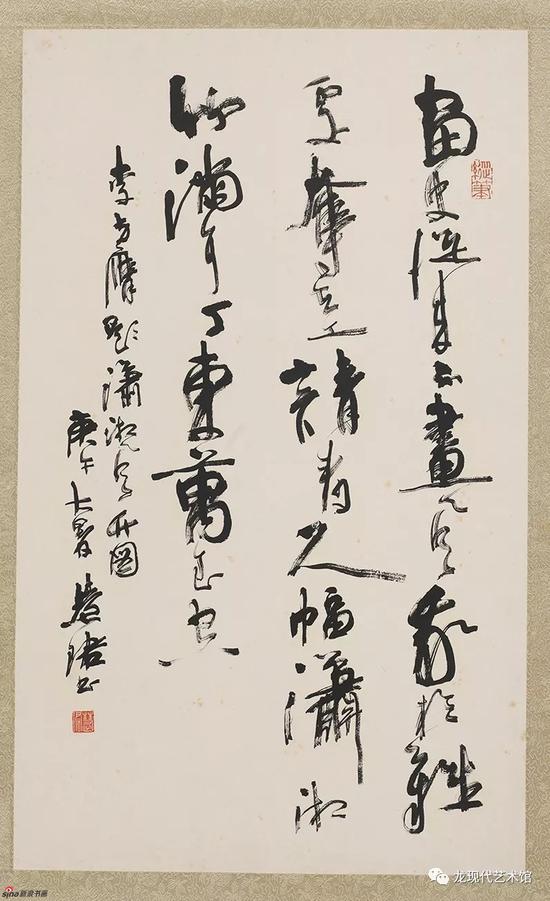 画史從来不畫風我於難
處奪天工請看尺幅瀟湘
竹滿耳丁東萬玉空
李方膺題瀟湘風竹圖
庚午大暑慧珺书
sina新浪书画
龙现代艺术馆